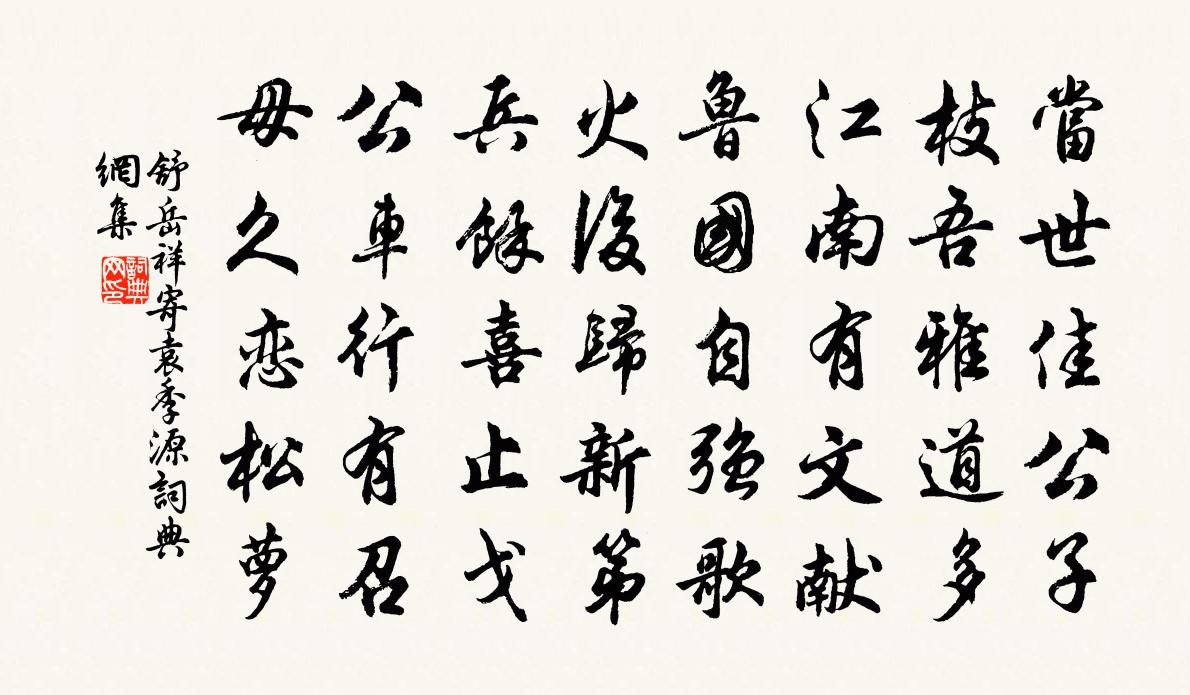 當世佳公子
枝吾雅道多
江南有文献
魯國自強歌
火後歸新第
兵餘喜止戈
公車行有召
毋久恋松萝
舒岳祥寄袁季源詞典
網集
詞典
网印